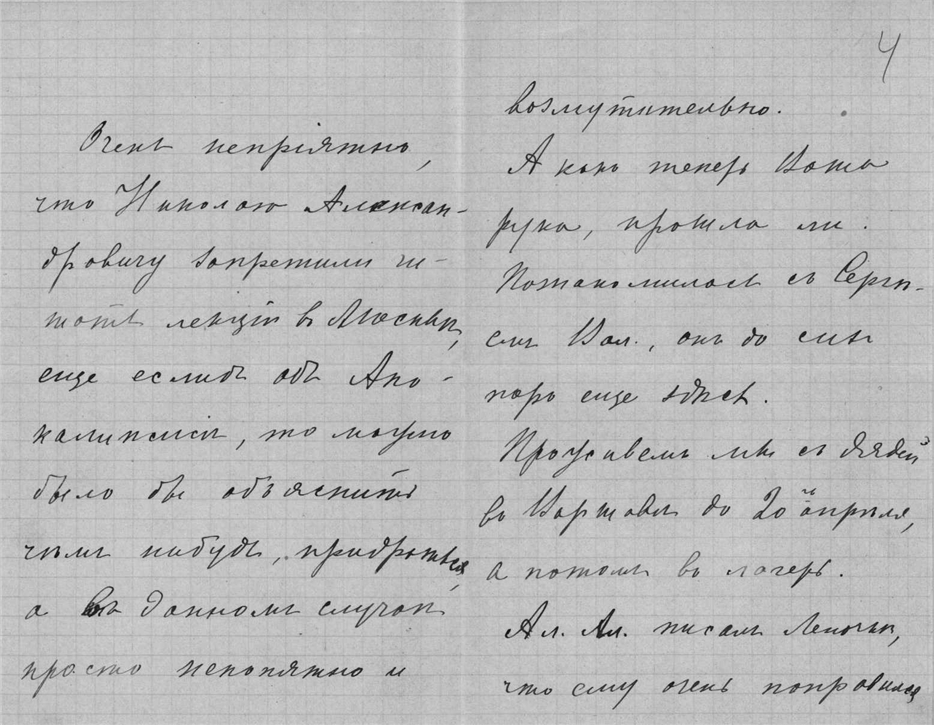 Очень непріятно,
что Николаю Алексан-
дровичу запретили чи-
тать лекціи въ Москвѣ,
еще еслибъ объ Апо-
калипсисѣ, то можно
было бы объяснить
чѣмъ нибудь, придраться,
а въ данномъ случаѣ
просто непонятно и
4
возмутительно.
А какъ теперь Ваша
рука, прошла ли.
Познакомилась съ Сергѣ-
емъ Вал., онъ до сихъ
поръ еще здѣсь.
Проживемъ мы съ дядей
въ Варшавѣ до 20го апрѣля,
а потомъ въ лагерь.
Ал. Ал. писалъ Леночкѣ,
что ему очень понравился